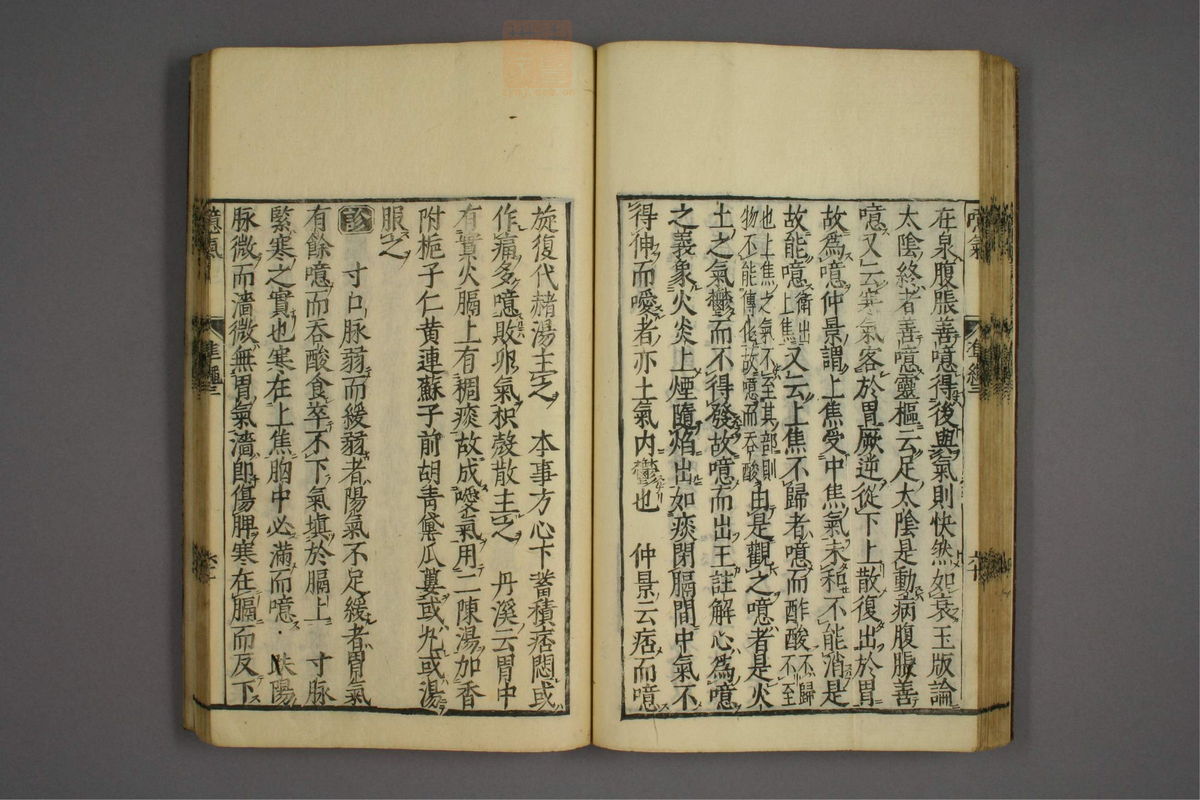 在泉腹脹善噫得後與氣則快然如衰玉版論
太陰終者善噫靈樞云足太陰是動病腹脹善
噫又云寒氣客於胃厥逆從下上散復出於胃
故爲噫仲景謂上焦受中焦氣未和不能消是
故能噫衛出上焦又云上焦不歸者噫而酢酸不歸不至
也上焦之氣不至其部則物不能傳化故噫而吞酸由是觀之噫者是火
土之氣鬱而不得發故噫而出王註解心爲噫
之義象火炎上煙隨焰出如痰閉膈間中氣不
得伸而噯者亦土氣内鬱也 仲景云痞而噫
旋復代赭湯主之 本事方心下蓄積痞悶或
作痛多噫敗卵氣枳殼散主之 丹溪云胃中
有實火膈上有稠痰故成噯氣用二陳湯加香
附梔子仁黄連蘇子前胡青黛瓜蔞或丸或湯
服之
診 寸口脉弱而緩弱者陽氣不足緩者胃氣
有餘噫而吞酸食卒不下氣填於膈上 寸脉
緊寒之實也寒在上焦胸中必滿而噫 趺陽
脉微而濇微無胃氣濇即傷脾寒在膈而反下
噫氣
準繩二